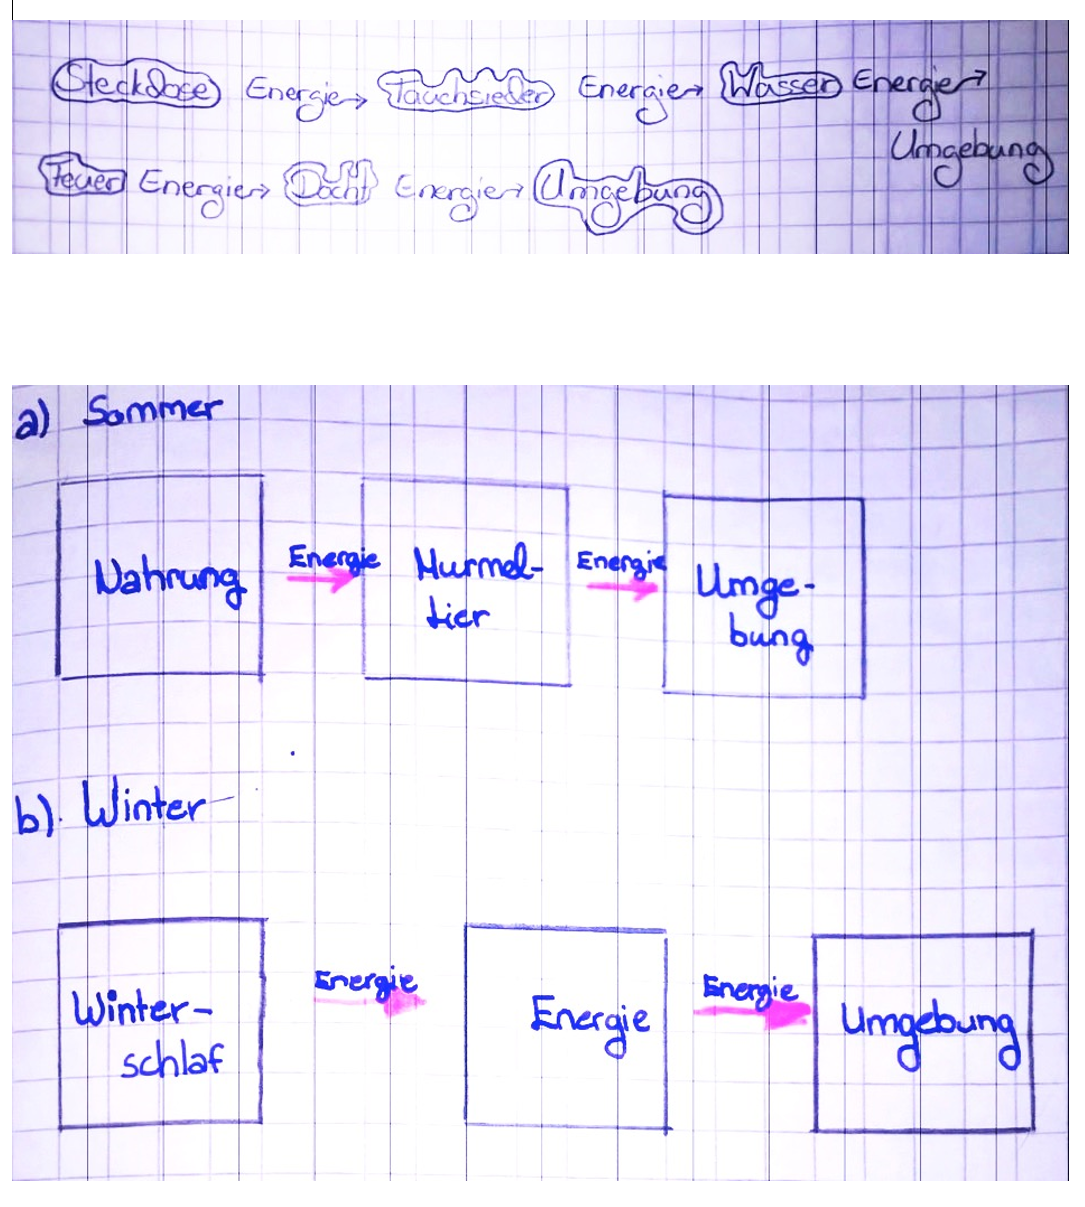 Steckdose Energie → Tauchsieder Energie → Wasser Energie →
Umgebung
Feuer Energie → Docht Energie → Umgebung
a) Sommer
Nahrung Energie → Murmel- Energie → Umge-
tier bung
b) Winter
Winter- Energie → Energie Energie → Umgebung
schlaf